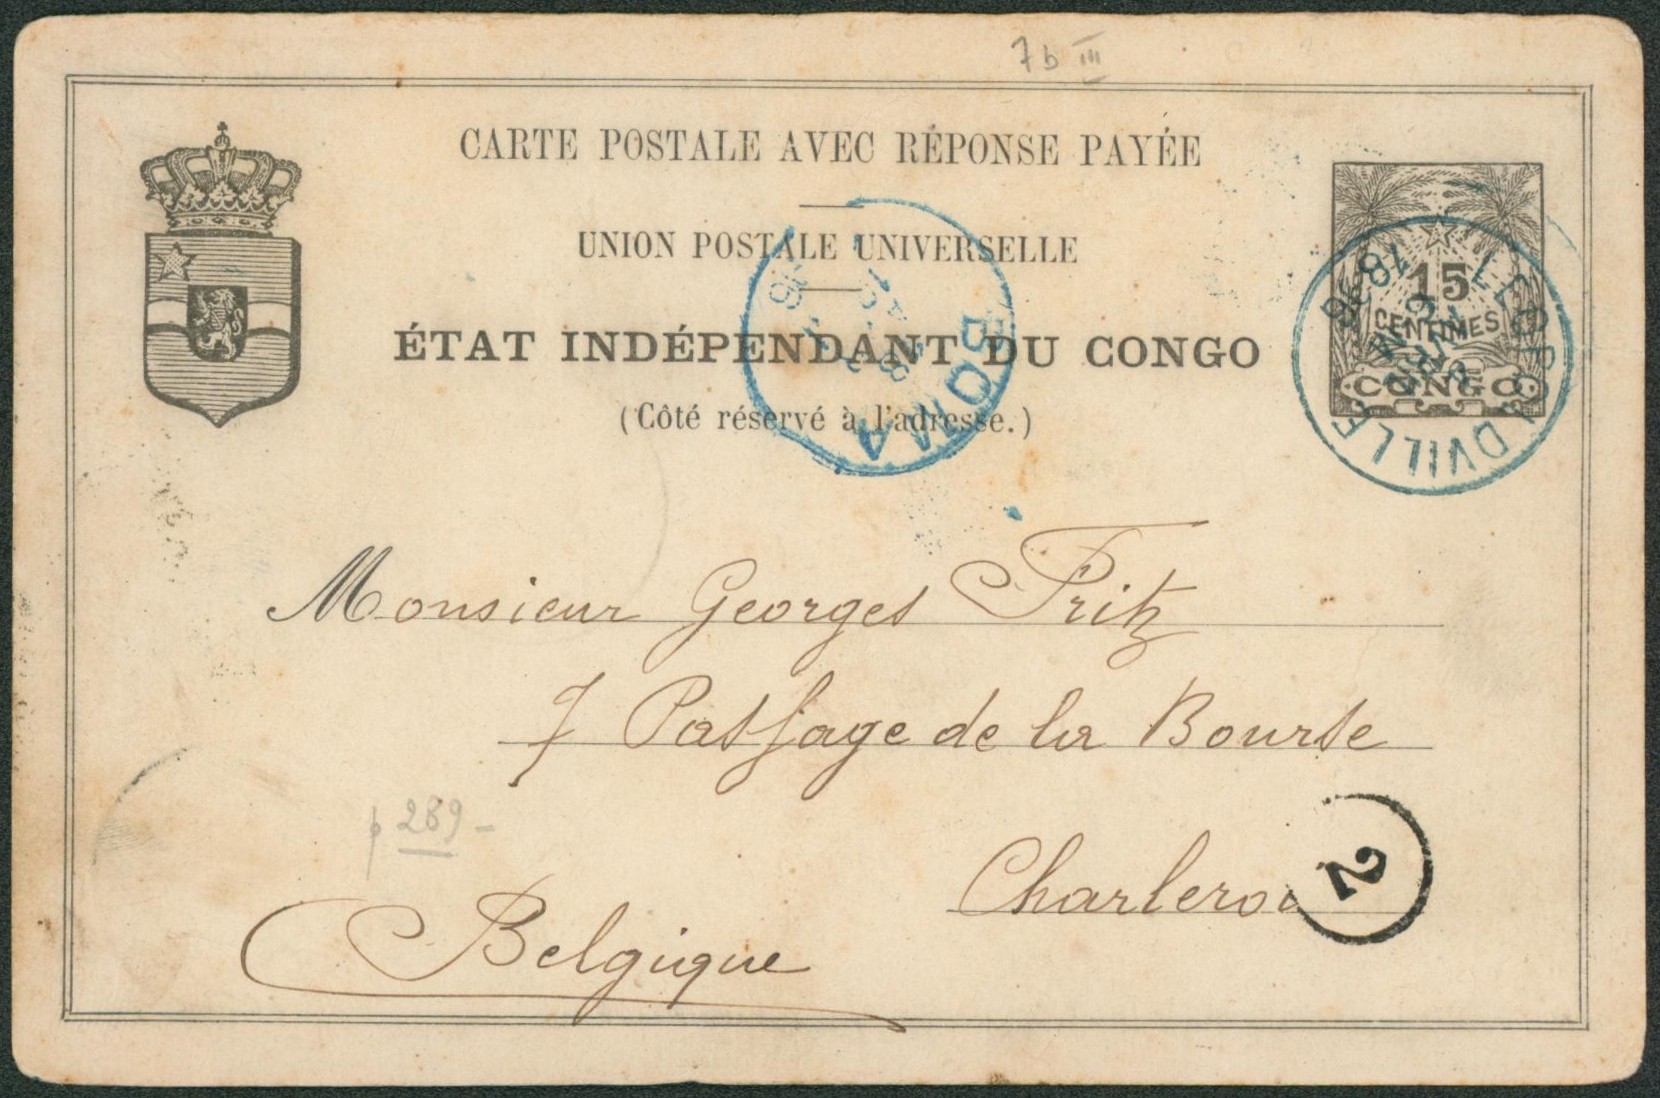 7 b III
CARTE POSTALE AVEC RÉPONSE PAYÉE
UNION POSTALE UNIVERSELLE
ÉTAT INDÉPENDANT DU CONGO
(Côté réservé à l'adresse.)
15
CENTIMES
CONGO
LEOPOLDVILLE
1896
BOMA
Monsieur Georges Fritz
7 Passage de la Bourse
Charleroi
2
p 289 -
Belgique